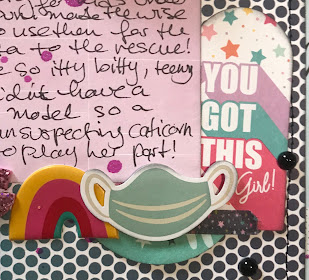 made these
to use them for the
to the rescue!
so itty bitty, teeny
didn't have a
model so a
unsuspecting caticorn
to play her part!
YOU
GOT
THIS
Girl!